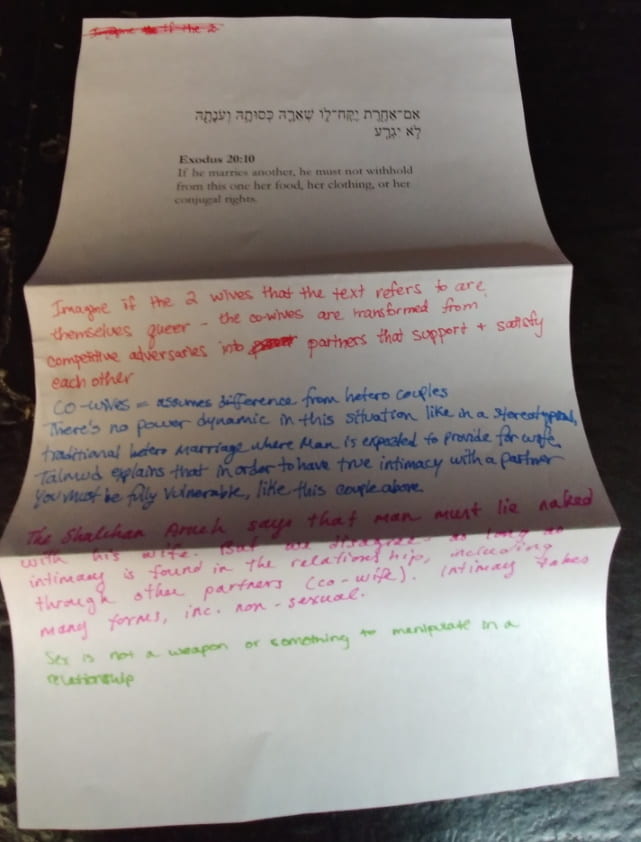 Imagine if the 2
אִם־אַחֶרֶת יִקַּח־לוֹ שְׁאֵרָהּ כְּסוּתָהּ וְעֹנָתָהּ
לֹא יִגְרָע
Exodus 20:10
If he marries another, he must not withhold
from this one her food, her clothing, or her
conjugal rights.
Imagine if the 2 wives that the text refers to are
themselves queer - the co-wives are transformed from
competitive adversaries into partners that support + satisfy
each other
CO-wives = assumes difference from hetero couples
There's no power dynamic in this situation like in a stereotypical,
traditional hetero marriage where man is expected to provide for wife.
Talmud explains that in order to have true intimacy with a partner
you must be fully vulnerable, like this couple above
The Shulchan Aruch says that man must lie naked
with his wife. But we disagree - as long as
intimacy is found in the relationship, including
through other partners (co-wife). Intimacy takes
many forms, inc. non-sexual.
Sex is not a weapon or something to manipulate in a
relationship